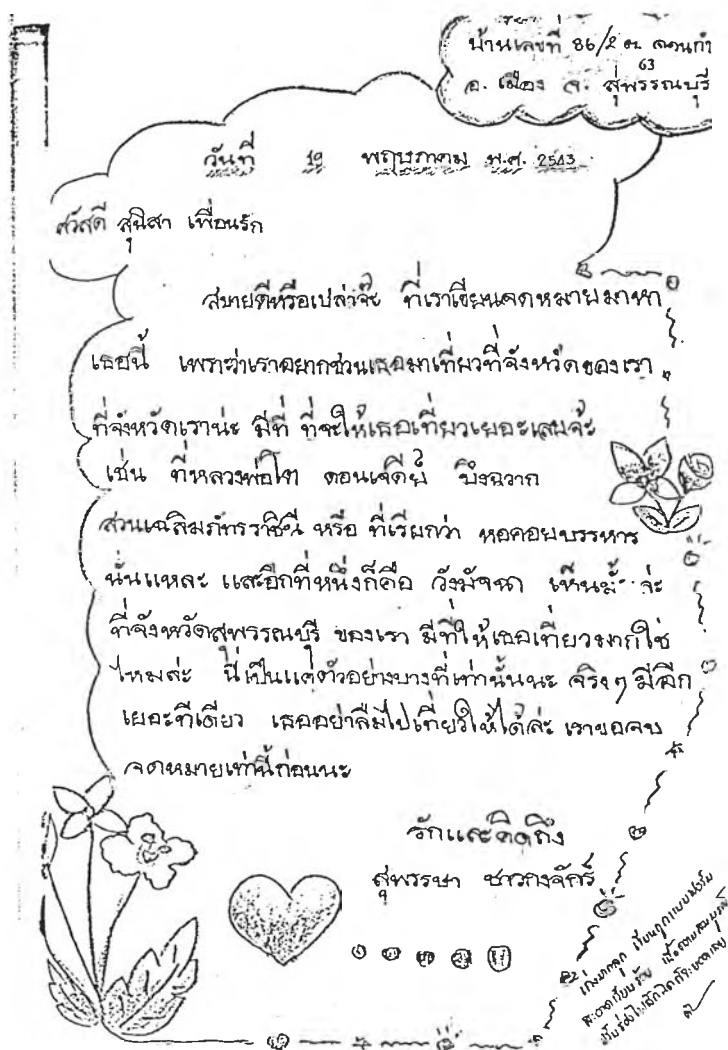 บ้านเลขที่ 86/2 ต. ดอนกำ
63
อ. เมือง จ. สุพรรณบุรี
วันที่ 19 พฤษภาคม พ.ศ. 2543
สวัสดี สุนิสา เพื่อนรัก
สบายดีหรือเปล่าจ๊ะ ที่เราเขียนจดหมายมาหา
เธอนี้ เพราะว่าเราอยากชวนเธอมาเที่ยวที่จังหวัดของเรา
ที่จังหวัดเราน่ะ มีที่ ที่จะให้เธอเที่ยวเยอะเลยจ้ะ
เช่น ที่หลวงพ่อโต ดอนเจดีย์ บึงฉวาก
สวนเฉลิมภัทรราชินี หรือ ที่เรียกว่า หอคอยบรรหาร
นั่นแหละ และอีกที่หนึ่งก็คือ วังมัจฉา เห็นมั้ ล่ะ
ที่จังหวัดสุพรรณบุรี ของเรา มีที่ให้เธอเที่ยวมากใช่
ไหมล่ะ นี่เป็นแค่ตัวอย่างบางที่เท่านั้นนะ จริงๆ มีอีก
เยอะทีเดียว เธออย่าลืมไปเที่ยวให้ได้ล่ะ เราขอจบ
จดหมายเท่านี้ก่อนนะ
รักและคิดถึง
สุพรรษา
เก่งมากลูก เขียนถูกแบบฟอร์ม